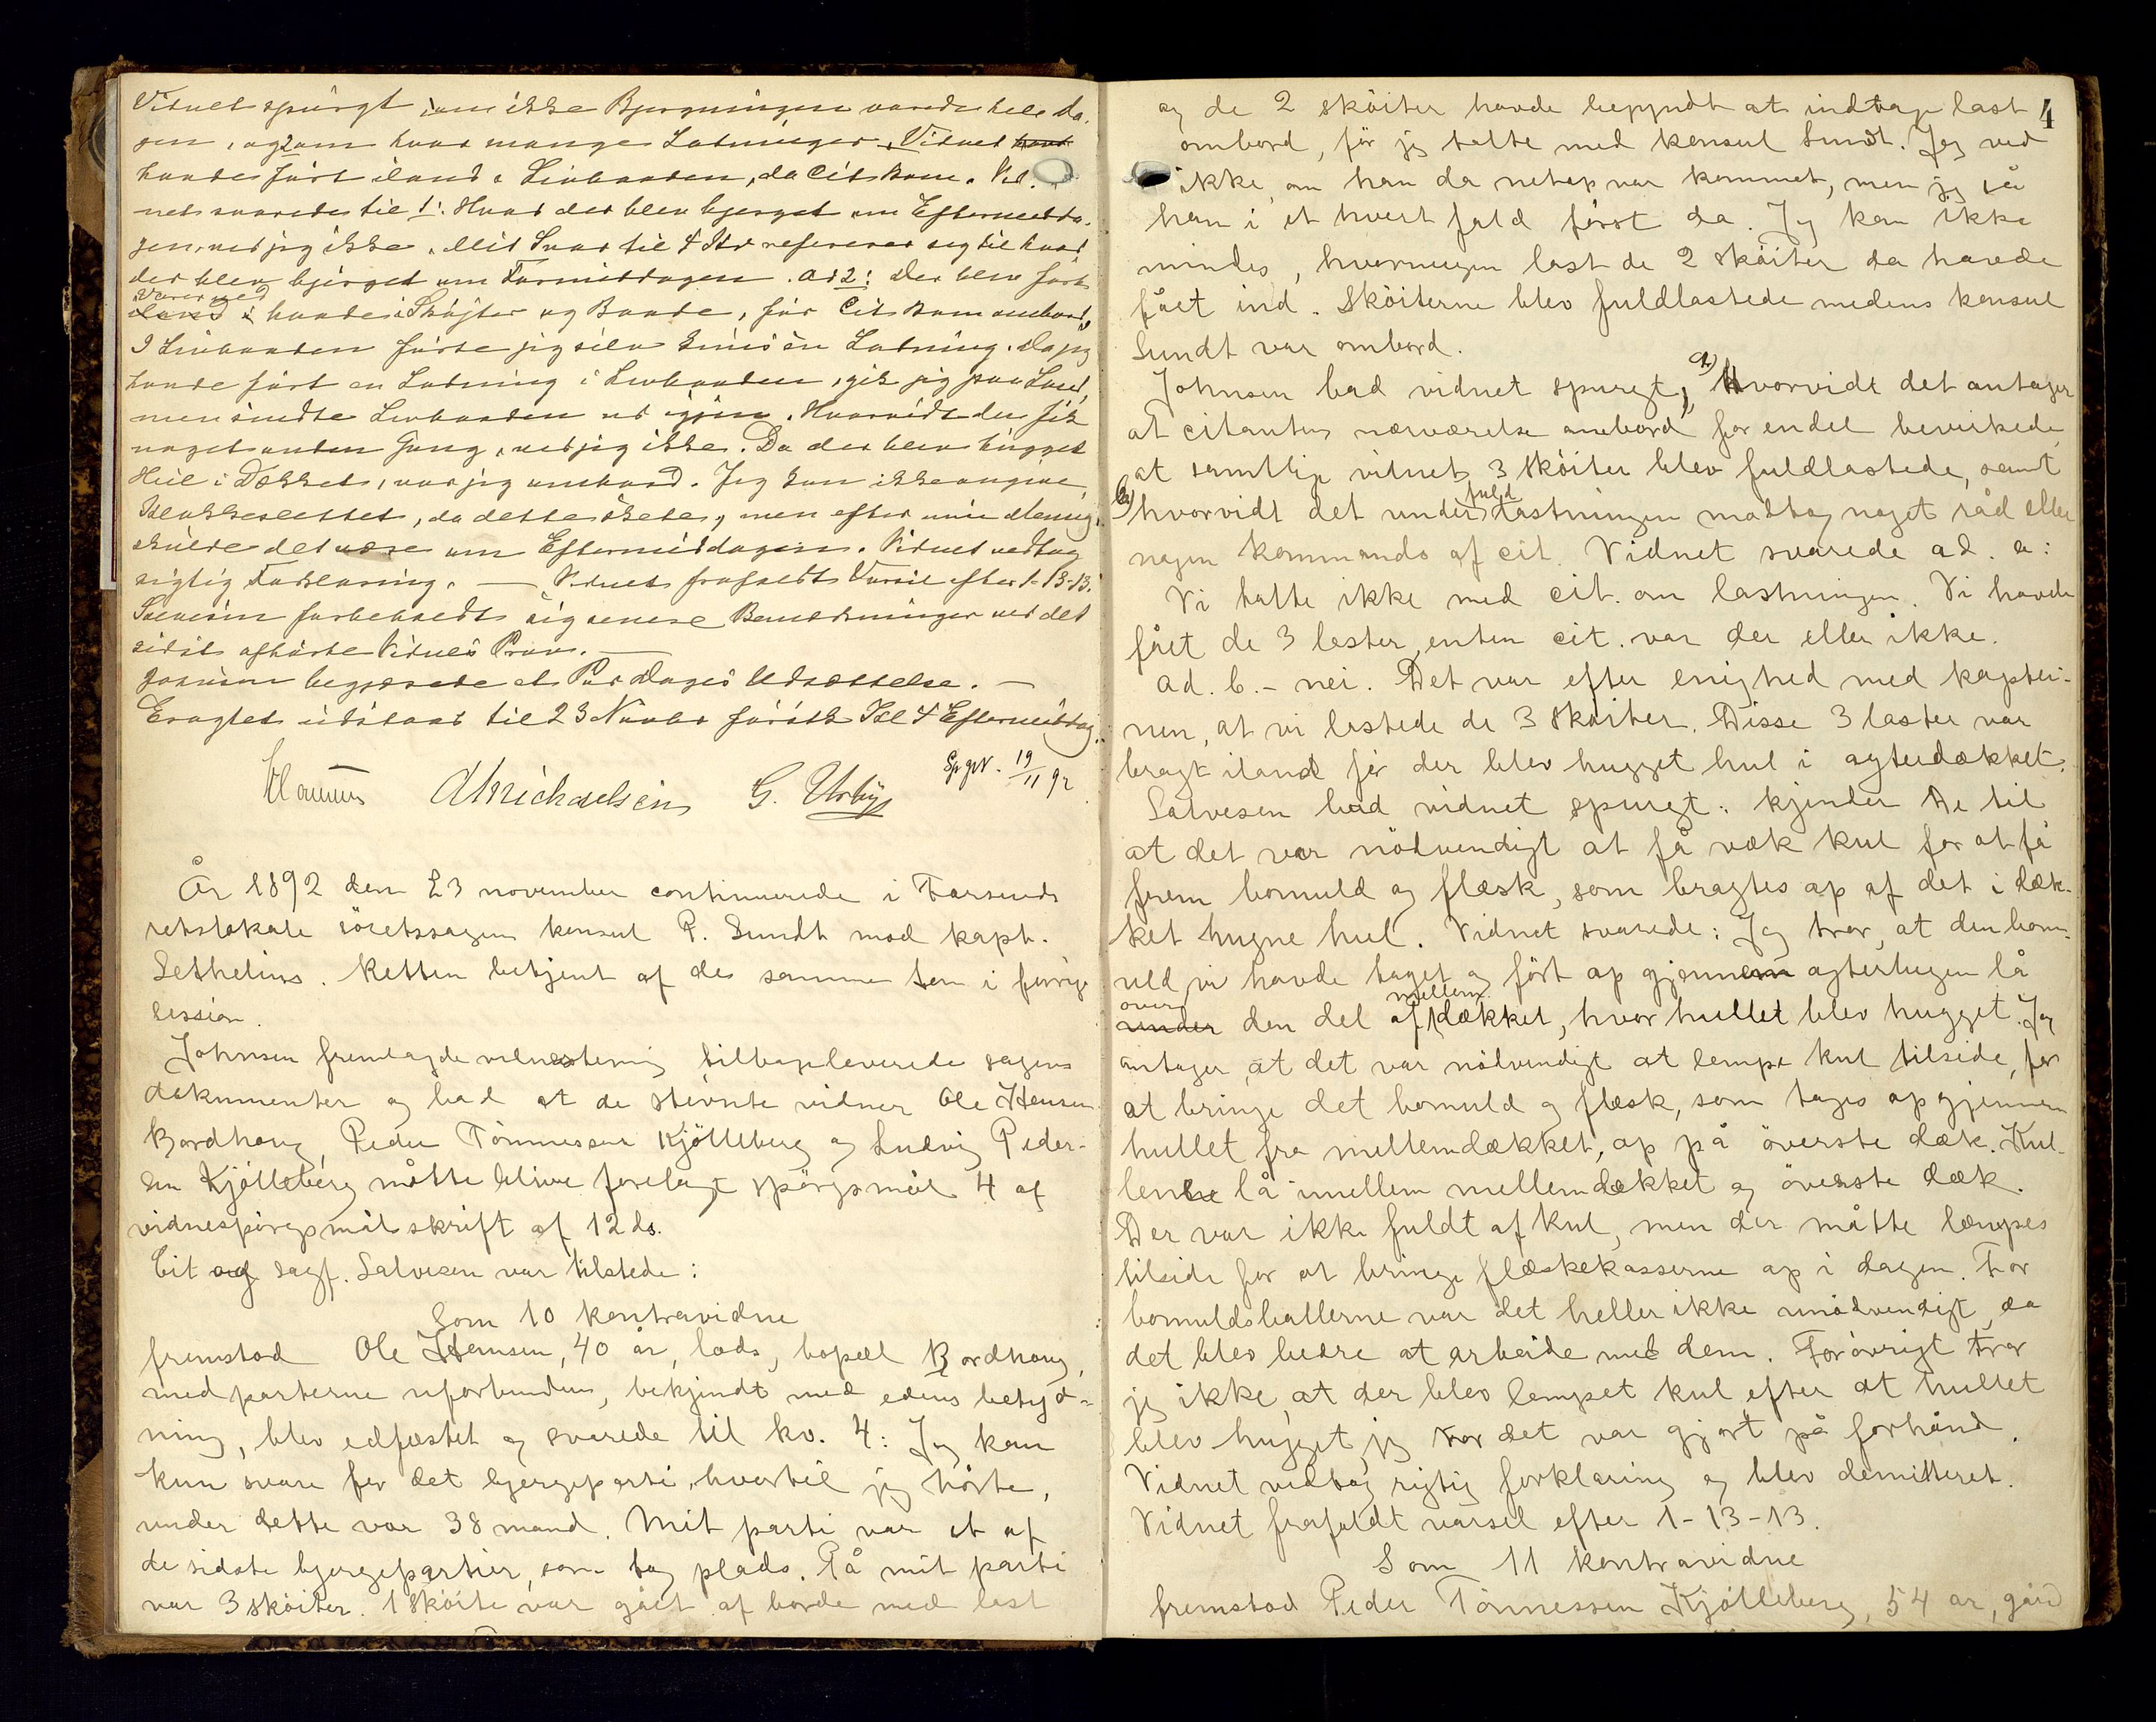 Vidnet spurgt 1 om ikke Bjergningen varede hele Da-
gen, og 2 om hvor mange Ladninger Vidnet havd
havde ført iland i Livbaaden, da Cit kom. Vid-
net svarede til 1: Hvad der blev bjerget om Eftermidda-
gen, ved jeg ikke. Mit Svar til 4 Str refererer sig til hvad
der blev bjerget om Formiddagen. Ad 2: Der blev ført
Varer ved
iland i baade Skøjter og Baade, før Cit kom ombord,
I Livbaaden førte jeg selv kuns én Ladning. Da jeg
havde ført en Ladning i Livbaaden, gik jeg paa Land,
men sendte Livbaaden ud igjen. Hvorvidt den fik
noget anden Gang, ved jeg ikke. Da der blev hugget
Hul i Dækket, var jeg ombord. Jeg kan ikke angive
Klokkeslettet, da dette skete, men efter min Mening
skulde det være om Eftermiddagen. Vidnet vedtog
rigtig Forklaring. — Vidnet frafaldt Varsel efter 1-13-13.
Salvesen forbeholdt sig senere Bemærkninger ved det
sidst afhørte Vidnes Prov. —
Johnsen begjærede et Par Dages Udsættelse. —
Eragtet udstaar til 23 Novbr førstk Kl 4 Eftermiddag.
AMichaelsen G. Urby 19/11 92

År 1892 den 23 november continuerede i Farsunds
retslokale söretssagen konsul P. Sundt mod kapt.
Sethelius. Retten betjent af de samme som i forrige
session.
Johnsen fremlagde vidnestevning tilbageleverede sagens
dokumenter og bad at de stevnte vidner Ole Hansen
Bordhaug, Peder Tönnessen Kjölleberg og Ludvig Peder-
sen Kjölleberg måtte blive forelagt spörgsmål 4 af
vidnespörgsmålskrift af 12 ds.
Cit og sagf. Salvesen var tilstede:
Som 10 kontravidne
fremstod Ole Hansen, 40 år, lods, bopæl Bordhaug,
med parterne uforbunden, bekjendt med edens betyd-
ning, blev edfæstet og svarede til kv. 4: Jeg kan
kun svare for det bjergeparti, hvortil jeg hörte,
under dette var 38 mand. Mit parti var et af
de sidste bjergepartier, som tog plads. På mit parti
var 3 sköiter. 1 sköite var gået af borde med last
4
og de 2 sköiter havde begyndt at indtage last
ombord, för jeg talte med konsul Sundt. Jeg ved
ikke, om han da netop var kommet, men jeg så
ham i et hvert fald först da. Jeg kan ikke
mindes, hvormegen last de 2 sköiter da havde
fået ind. Sköiterne blev fuldlastede medens konsul
Sundt var ombord.
Johnsen bad vidnet spurgt, a) Hvorvidt det antager
at citantens nærværelse ombord for endel bevirkede
at samtlige vidnets 3 sköiter blev fuldlastede, samt
b) hvorvidt det under fuldlastningen modtog noget råd eller
nogen kommando af cit. Vidnet svarede ad. a:
Vi talte ikke med cit. om lastningen. Vi havde
fået de 3 laster, enten cit. var der eller ikke.
Ad. b. – nei. Det var efter enighed med kaptei-
nen, at vi lastede de 3 sköiter. Disse 3 laster var
bragt iland för der blev hugget hul i agterdækket.
Salvesen bad vidnet spurgt: kjender De til
at det var nödvendigt at få væk kul for at få
frem bomuld og flæsk, som bragtes op af det i dæk-
ket hugne hul. Vidnet svarede: Jeg tror, at den bom-
uld, vi havde taget og fört op gjennem agterlugen lå
over
under den del af mellemdækket, hvor hullet blev hugget. Jeg
antager, at det var nödvendigt at lempe kul tilside, for
at bringe det bomuld og flæsk, som toges op gjennem
hullet fra mellemdækket, op på överste dæk. Kul-
lene lå imellem mellemdækket og överste dæk.
Der var ikke fuldt af kul, men der måtte lempes
tilside for at bringe flæskekasserne op i dagen. For
bomuldsballerne var det heller ikke unödvendigt, da
det blev bedre at arbeide med dem. Forövrigt tror
jeg ikke, at der blev lempet kul efter at hullet
blev hugget, jeg tror det var gjort på forhånd.
Vidnet vedtog rigtig forklaring og blev demitteret.
Vidnet frafaldt varsel efter 1-13-13.
Som 11 kontravidne
fremstod Peder Tönnessen Kjölleberg, 54 år, gård